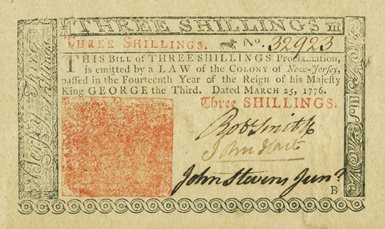 THREE SHILLINGS III
THREE SHILLINGS. No. 32923
THIS BILL of THREE SHILLINGS Proclamation,
is emitted by a LAW of the COLONY of New-Jersey,
passed in the Fourteenth Year of the Reign of his Majesty
King GEORGE the Third. Dated MARCH 25, 1776.
Three SHILLINGS.
Robt Smith
John Hart
John Stevens Junr.
B